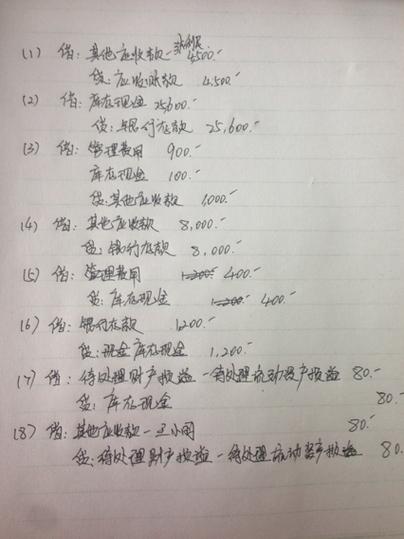 (1) 借：其他应收款 4500.-
贷：应收账款 4,500.-
(2) 借：库存现金 25,600.-
贷：银行存款 25,600.-
(3) 借：管理费用 900.-
库存现金 100.-
贷：其他应收款 1,000.-
(4) 借：其他应收款 8,000.-
贷：银行存款 8,000.-
(5) 借：管理费用 1200.- 400.-
贷：库存现金 1,200.- 400.-
(6) 借：银行存款 1200.-
贷：现金 库存现金 1,200.-
(7) 借：待处理财产损益－待处理流动资产损益 80.-
贷：库存现金 80.-
(8) 借：其他应收款－王小周 80.-
贷：待处理财产损益－待处理流动资产损益 80.